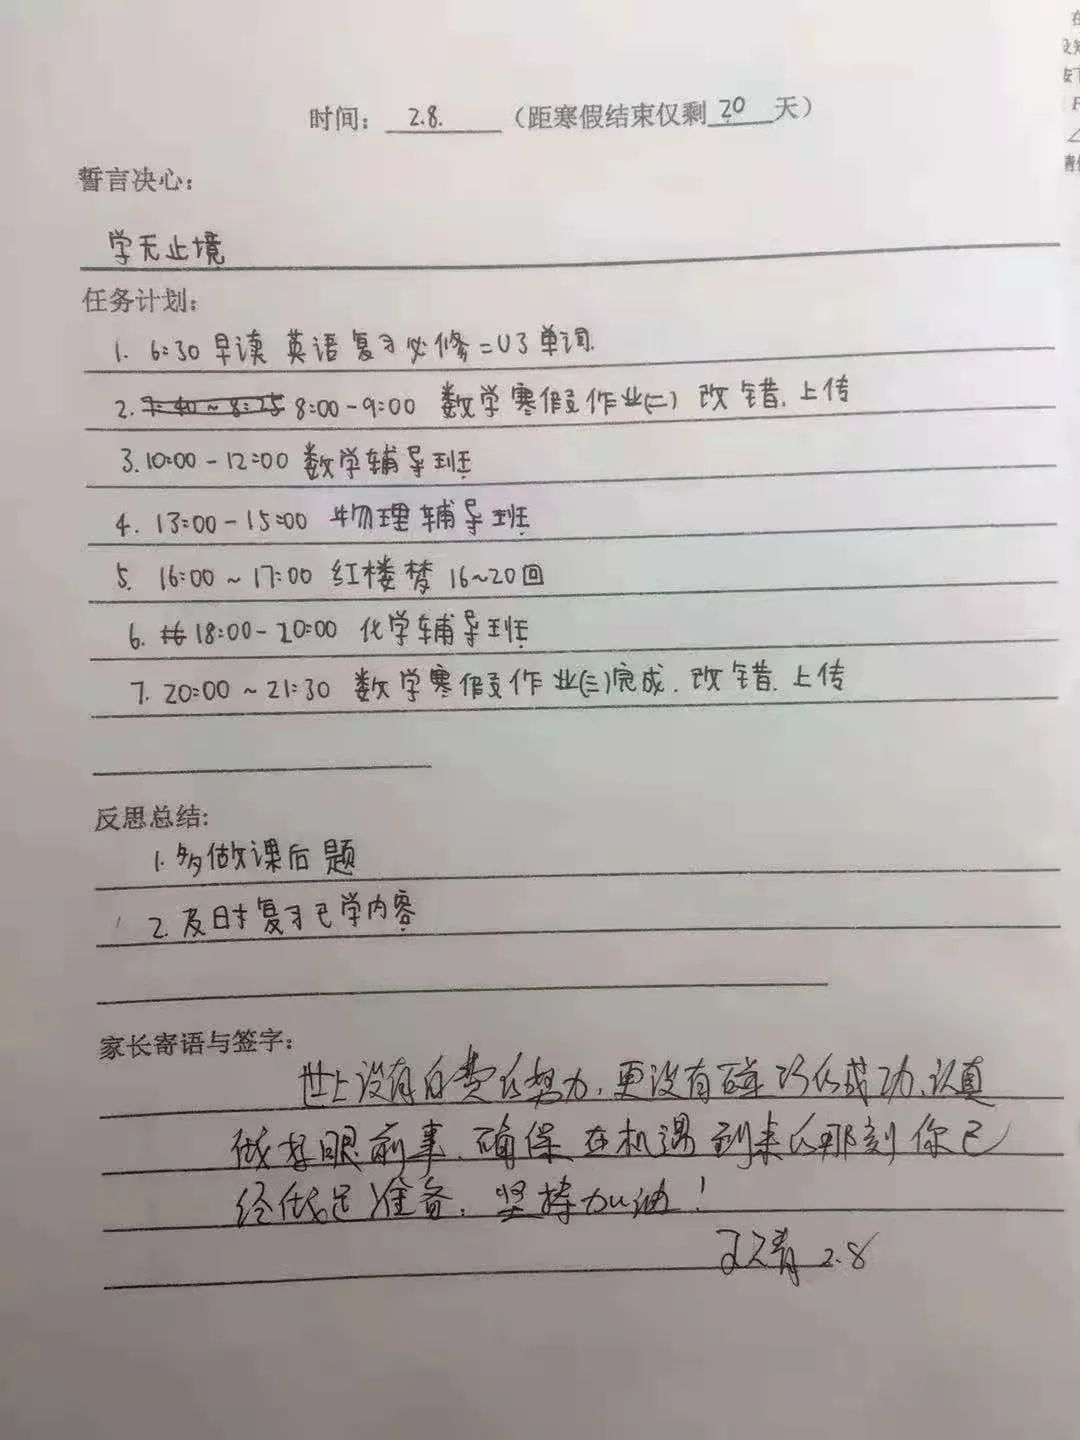 时间: 2.8. (距寒假结束仅剩 20 天)
誓言决心:
学无止境
任务计划:
1. 6:30 早读 英语复习必修二U3单词.
2. 7:40~8:25 8:00-9:00 数学寒假作业(二) 改错.上传
3. 10:00-12:00 数学辅导班
4. 13:00-15:00 物理辅导班
5. 16:00~17:00 红楼梦 16~20回
6. 18:00-20:00 化学辅导班
7. 20:00~21:30 数学寒假作业(三)完成.改错.上传
反思总结:
1. 多做课后题
2. 及时复习已学内容
家长寄语与签字:
世上没有白费的努力,更没有碰巧的成功,认真
做好眼前事.确保在机遇到来的那刻你已
经做足准备.坚持加油!
2.8